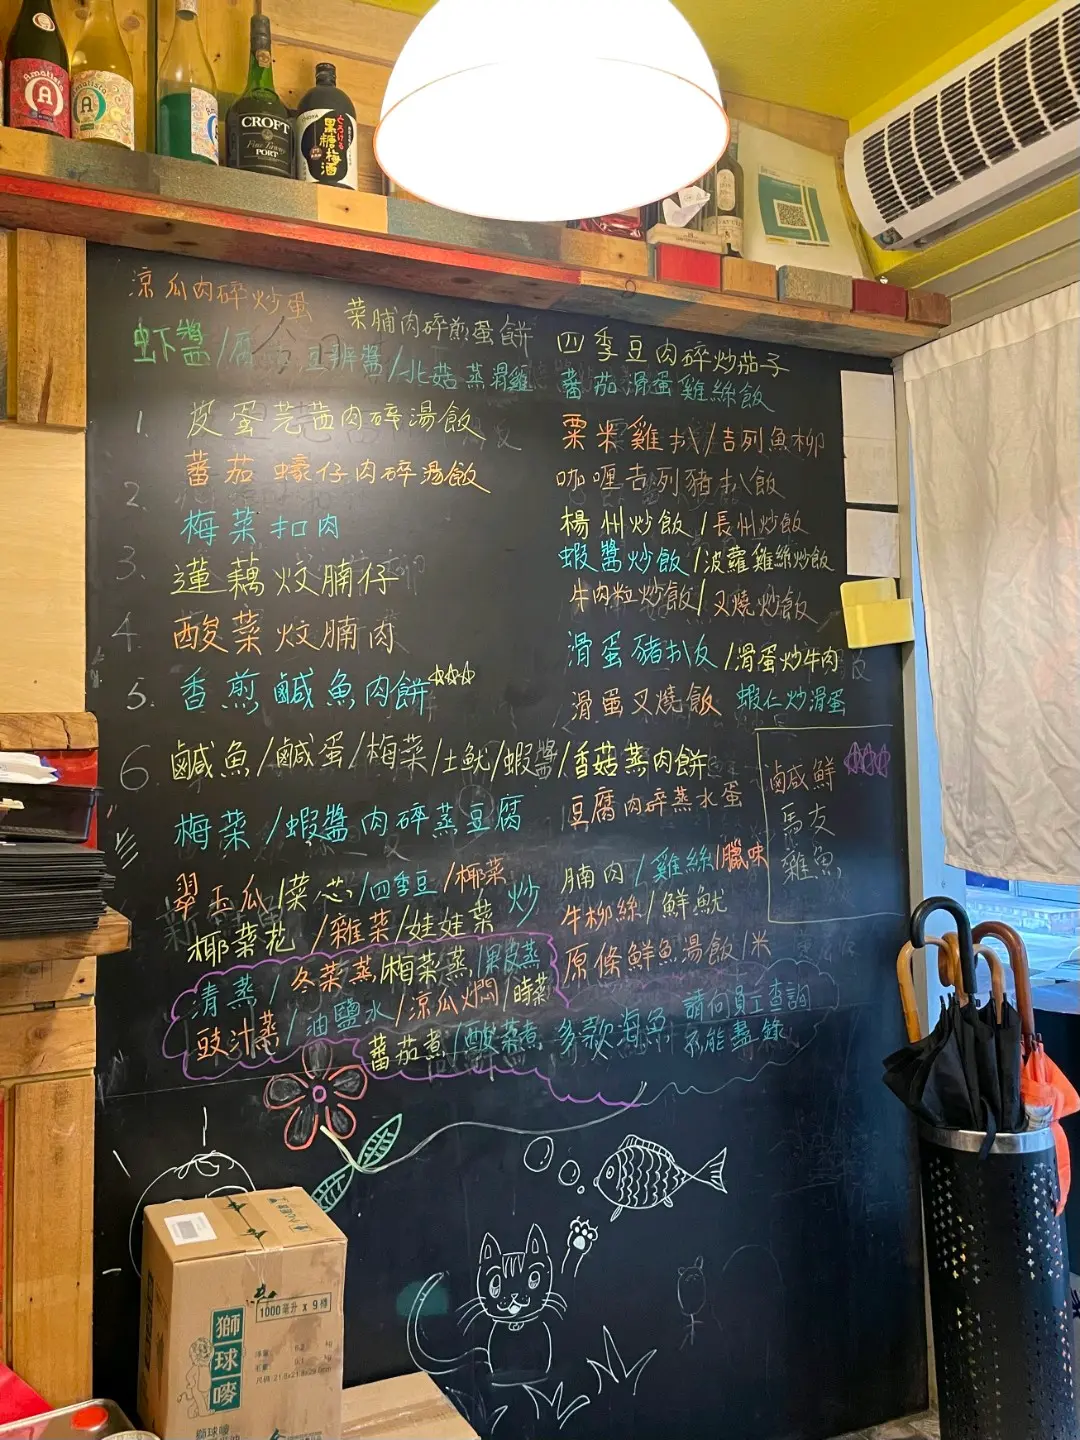 Amalista
A
CROFT
Fine Tawny
PORT
とろける
黒糖梅酒
涼瓜肉碎炒蛋
菜脯肉碎煎蛋餅
四季豆肉碎炒茄子
虾醬/腐 豆辦醬/北菇蒸滑雞
蕃茄滑蛋雞絲飯
1. 皮蛋芫茜肉碎湯飯
粟米雞扒/吉列魚柳
2. 蕃茄蠔仔肉碎湯飯
咖喱吉列豬扒飯
梅菜扣肉
楊州炒飯/長州炒飯
3. 蓮藕炆腩仔
蝦醬炒飯/波蘿雞絲炒飯
牛肉粒炒飯/叉燒炒飯
4. 酸菜炆腩肉
滑蛋豬扒反/滑蛋炒牛肉
5. 香煎鹹魚肉餅
滑蛋叉燒飯 蝦仁炒滑蛋
6. 鹹魚/鹹蛋/梅菜/土魷/蝦醬/香菇蒸肉餅
鹹鮮
馬友
雞魚
梅菜/蝦醬肉碎蒸豆腐
豆腐肉碎蒸水蛋
翠玉瓜/菜芯/四季豆/椰菜炒
腩肉/雞絲/臘味
椰菜花/雜菜/娃娃菜
牛柳絲/鮮魷
清蒸/冬菜蒸/梅菜蒸/果皮蒸
原條鮮魚湯飯/米
豉汁蒸/油鹽水/涼瓜焖/時菜
蕃茄煮/酸菜煮 多款海魚 請向員工查詢
不能盡錄
1000毫升 x 9樽
獅球嘜
淨重
毛重
尺碼
獅球嘜